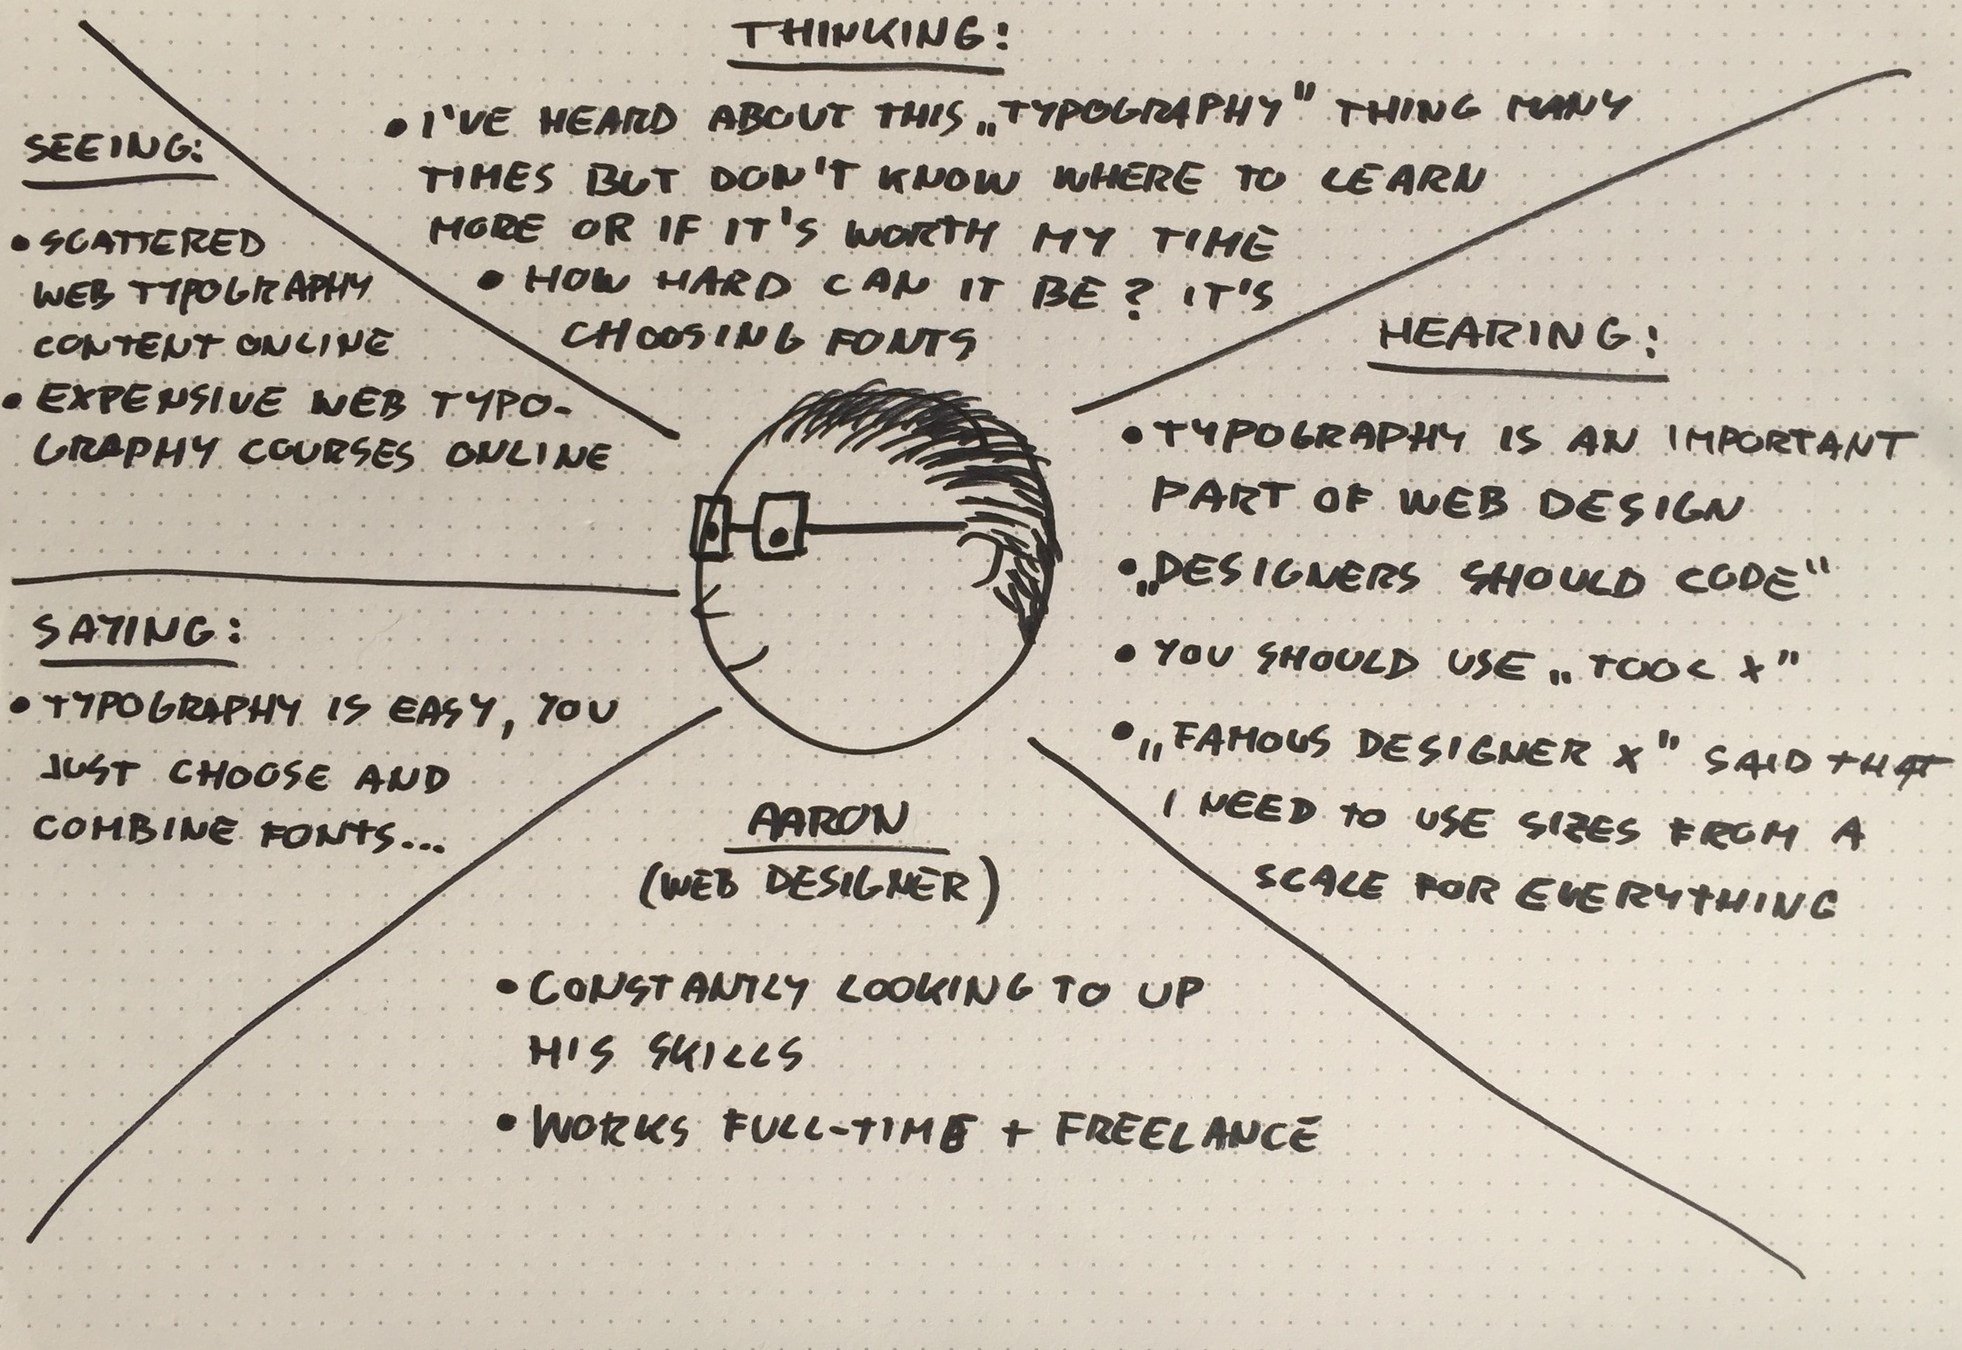 THINKING:
• I'VE HEARD ABOUT THIS „TYPOGRAPHY" THING MANY
TIMES BUT DON'T KNOW WHERE TO LEARN
MORE OR IF IT'S WORTH MY TIME
• HOW HARD CAN IT BE? IT'S
CHOOSING FONTS
SEEING:
• SCATTERED
WEB TYPOGRAPHY
CONTENT ONLINE
• EXPENSIVE WEB TYPO-
GRAPHY COURSES ONLINE
HEARING:
• TYPOGRAPHY IS AN IMPORTANT
PART OF WEB DESIGN
• „DESIGNERS SHOULD CODE"
• YOU SHOULD USE „TOOL X"
• „FAMOUS DESIGNER X" SAID THAT
I NEED TO USE SIZES FROM A
SCALE FOR EVERYTHING
SAYING:
• TYPOGRAPHY IS EASY, YOU
JUST CHOOSE AND
COMBINE FONTS...
AARON
(WEB DESIGNER)
• CONSTANTLY LOOKING TO UP
HIS SKILLS
• WORKS FULL-TIME + FREELANCE